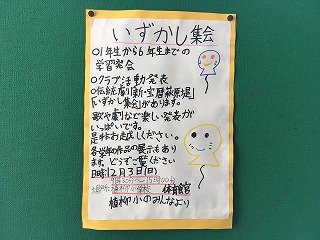 いずかし集会
○1年生から6年生までの
学習発会
○クラブ活動発表
○伝統劇「新・宝暦萩原堤」
「いずかし集会」があります。
歌や劇など楽しい発表が
いっぱいです。
是非お越しください。
各学年の作品の展示もあり
ます。どうぞご覧ください
日時12月3日(日)
場所 植柳小学校 体育館
植柳小のみんなより